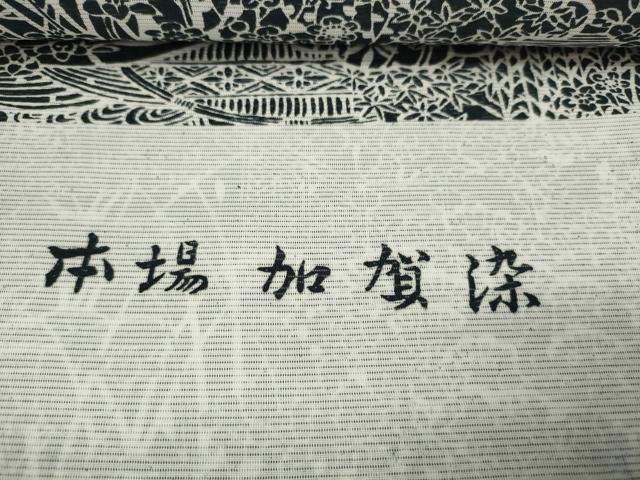 本場加賀染